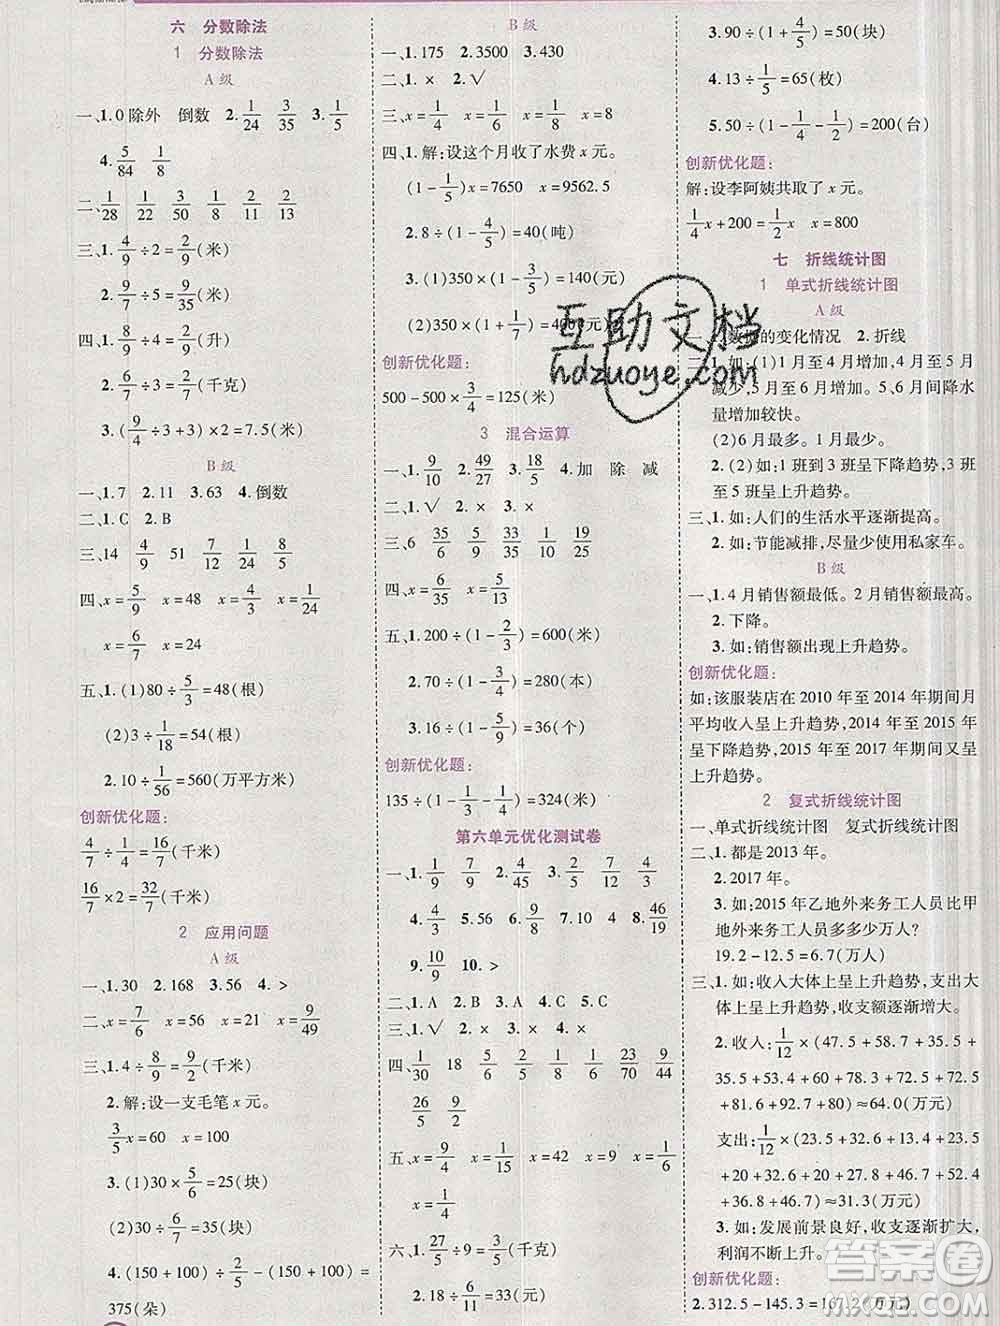 六 分数除法
1 分数除法
A 级
一、1. 0 除外 倒数 2. 1/24 3/35 3. 1/5
4. 5/84 1/91
二、1/28 1/22 3/50 1/8 2/11 2/13
三、1. 4/9 ÷ 2 = 2/9 (米)
2. 9/7 ÷ 5 = 9/35 (米)
四、1. 8/9 ÷ 4 = 2/9 (升)
2. 6/7 ÷ 3 = 2/7 (千克)
3. (9/4 ÷ 3 + 3) × 2 = 7.5 (米)
B 级
一、1. 7 2. 11 3. 63 4. 倒数
二、1. C 2. B
三、14 4/9 51 7/12 1/24 8/5
四、x = 5/9 x = 48 x = 4/9 x = 1/24
x = 6/7 x = 24
五、1. (1) 80 ÷ 5/3 = 48 (根)
(2) 3 ÷ 1/18 = 54 (根)
2. 10 ÷ 1/56 = 560 (万平方米)
创新优化题:
4/7 ÷ 1/4 = 16/7 (千米)
16/7 × 2 = 32/7 (千米)
2 应用问题
A 级
一、1. 30 2. 168 3. 56 4. >
二、x = 7/6 x = 16 x = 21 x = 9/49
三、1. 4 ÷ 8/9 = 9/2 (千米)
2. 解:设一支毛笔 x 元。
3/5 x = 60 x = 100
3. (1) 30 × 5/6 = 25 (块)
(2) 30 ÷ 6/7 = 35 (块)
4. (150 + 100) ÷ 2/5 - (150 + 100) =
375 (朵)
B 级
一、1. 175 2. 3500 3. 430
二、1. × 2. √
三、x = 1/4 x = 1/6 x = 1/8
四、1. 解:设这个月收了水费 x 元。
(1 - 1/5) x = 7650 x = 9562.5
2. 8 ÷ (1 - 4/5) = 40 (吨)
3. (1) 350 × (1 - 3/5) = 140 (元)
(2) 350 × (1 + 1/7) = 400 (元)
创新优化题:
500 - 500 × 3/4 = 125 (米)
3 混合运算
一、1. 9/10 2. 49/27 3. 18/5 4. 加 除 减
二、1. √ 2. × 3. ×
三、6 35/6 5/9 9/2 1/6 25/9
四、x = 6/35 x = 5/16
五、1. 200 ÷ (1 - 2/3) = 600 (米)
2. 70 ÷ (1 - 3/4) = 280 (本)
3. 16 ÷ (1 - 5/9) = 36 (个)
创新优化题:
135 ÷ (1 - 1/3 - 1/4) = 324 (米)
第六单元优化测试卷
一、1. 1/9 7/9 2. 4/45 5/9 3. 5/6 9/5
4. 4/3 5. 56 6. 9/8 7. 50 8. 46/19
9. 2/10 10. >
二、1. A 2. B 3. C 4. A
三、1. √ 2. × 3. × 4. × 5. ×
四、1/30 18 5/6 2/5 1/6 23/70 9/56
26/5 9/2
五、x = 9/4 x = 1/15 x = 42 x = 90 x = 1/6
x = 1/4
六、1. 27/5 ÷ 9 = 3/5 (千克)
2. 18 ÷ 6/11 = 33 (元)
3. 90 ÷ (1 + 4/5) = 50 (块)
4. 13 ÷ 1/5 = 65 (枚)
5. 50 ÷ (1 - 1/4 - 1/2) = 200 (台)
创新优化题:
解:设李阿姨共取了 x 元。
1/4 x + 200 = 1/2 x x = 800
七 折线统计图
1 单式折线统计图
A 级
的变化情况 2. 折线
二、1. 如:(1) 1 月至 4 月增加,4 月至 5 月
减少,5 月至 6 月增加。5、6 月间降水
量增加较快。
(2) 6 月最多。1 月最少。
2. (2) 如:1 班到 3 班呈下降趋势,3 班
至 5 班呈上升趋势。
三、1. 如:人们的生活水平逐渐提高。
2. 如:节能减排,尽量少使用私家车。
B 级
一、1. 4 月销售额最低。2 月销售额最高。
2. 下降。
3. 如:销售额出现上升趋势。
创新优化题:
如:该服装店在 2010 年至 2014 年期间月
平均收入呈上升趋势,2014 年至 2015 年
呈下降趋势,2015 年至 2017 年期间又呈
上升趋势。
2 复式折线统计图
一、单式折线统计图 复式折线统计图
二、1. 都是 2013 年。
2. 2017 年。
3. 如:2015 年乙地外来务工人员比甲
地外来务工人员多多少万人?
19.2 - 12.5 = 6.7 (万人)
三、1. 如:收入大体上呈上升趋势,支出大
体上呈上升趋势,收支额逐渐增大。
2. 收入:1/12 × (47.5 + 35.5 +
35.5 + 53.5 + 65.5 + 72.4 + 82.6
+ 81.6 + 92.7 + 76.8) ≈ 64.0 (万元)
支出:1/12 × (23.5 + 32.6 + 13.5
+ 20 + 32.8 + 43.6 + 42.7 + 38.6 +
36.8 + 46.7) ≈ 31.3 (万元)
3. 如:发展前景良好,收支逐渐扩大,
利润不断上升。
创新优化题:
2. 312.5 - 145.3 = 167.2 (万元)
互助文档
hdzuoye.com
答案圈
MXQE.COM